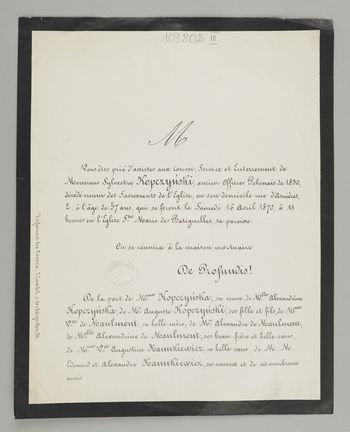 109802 III
M
Vous êtes prié d'assister aux Convoi, Service et Enterrement de
Monsieur Sylvestre Kopczyński, ancien Officier Polonais de 1830,
décédé muni des Sacrements de l'Eglise, en son domicile rue
2, à l'âge de 57 ans, qui se feront le Samedi 16 Avril 1870, à 11
heures en l'Eglise Ste Marie des Batignolles, sa paroisse.
On se réunira à la maison mortuaire.
De Profundis!
De la part de Mme Kopczyńska, sa veuve, de Melle Alexandrine
Kopczyńska, de Mr Auguste Kopczyński, ses fille et fils, de Mme
Vve de Maulmont, sa belle mère, de Mr Alexandre de Maulmont,
de Melle Alexandrine de Maulmont, ses beau-frère et belle-sœur,
de Mme Vve Augustine Kamskiewicz, sa belle sœur, de M. M.
Edouard et Alexandre Kamskiewicz, ses neveux et de ses nombreux
amis